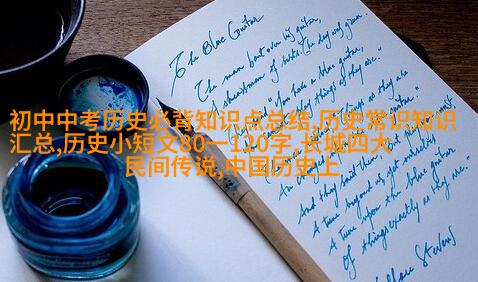 The Blue Guitar
The man bent over his guitar,
shearsman of sorts. The day was green.
"You have a blue guitar,
things as they are."
初中中考历史必背知识点总结,历史常识知识
汇总,历史小短文80一120字,长城四大
民间传说,中国历史上
And they said then
A tune beyond us, yet ourselves
A tune upon the blue guitar
Of things exactly as they are."
Wallace Stevens